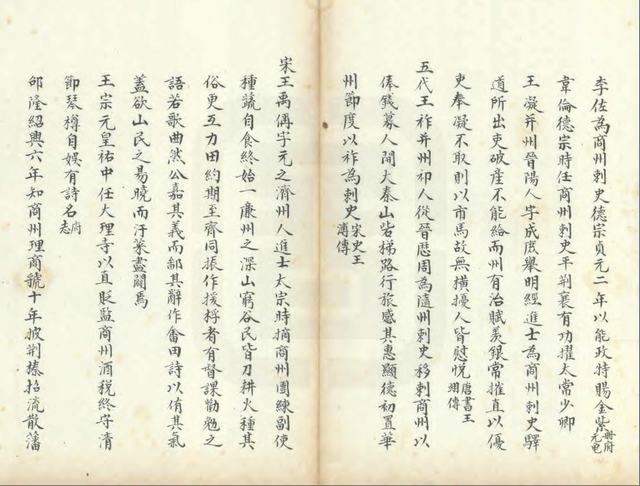 李佐為商州刺史德宗貞元二年以能政持賜金紫冊府元龟
韋倫德宗時任商州刺史平荆襄有功擢太常少卿
王凝并州晉陽人字成庶舉明經進士為商州刺史驛
道所出吏破產不能給而州有治賦羨銀常摧直以優
吏奉凝不取則以市馬故無横擾人皆慰悦唐書王翊傳
五代王祚并州初人從晉歷周為隨州刺史移刺商州以
俸錢募人開大秦山岩梯路行旅感其惠顯德初置華
州節度以祚為刺史宋史王溥傳
宋王禹偁字元之濟州人進士太宗時摘商州團練副使
種蔬自食終始一廉州之深山窮谷民皆刀耕火種其
俗更互力田約期至齊同振作援桴者有督課勸勉之
語若歌曲然公嘉其義而鄙其辭作畬田詩以侑其氣
蓋欲山民之易曉而汙萊盡闢焉
王宗元皇祐中任大理寺以直貶監商州酒税終守清
節琴樽自娱有詩名府志
邵隆紹興六年知商州理商虢十年披荆榛招流散藩